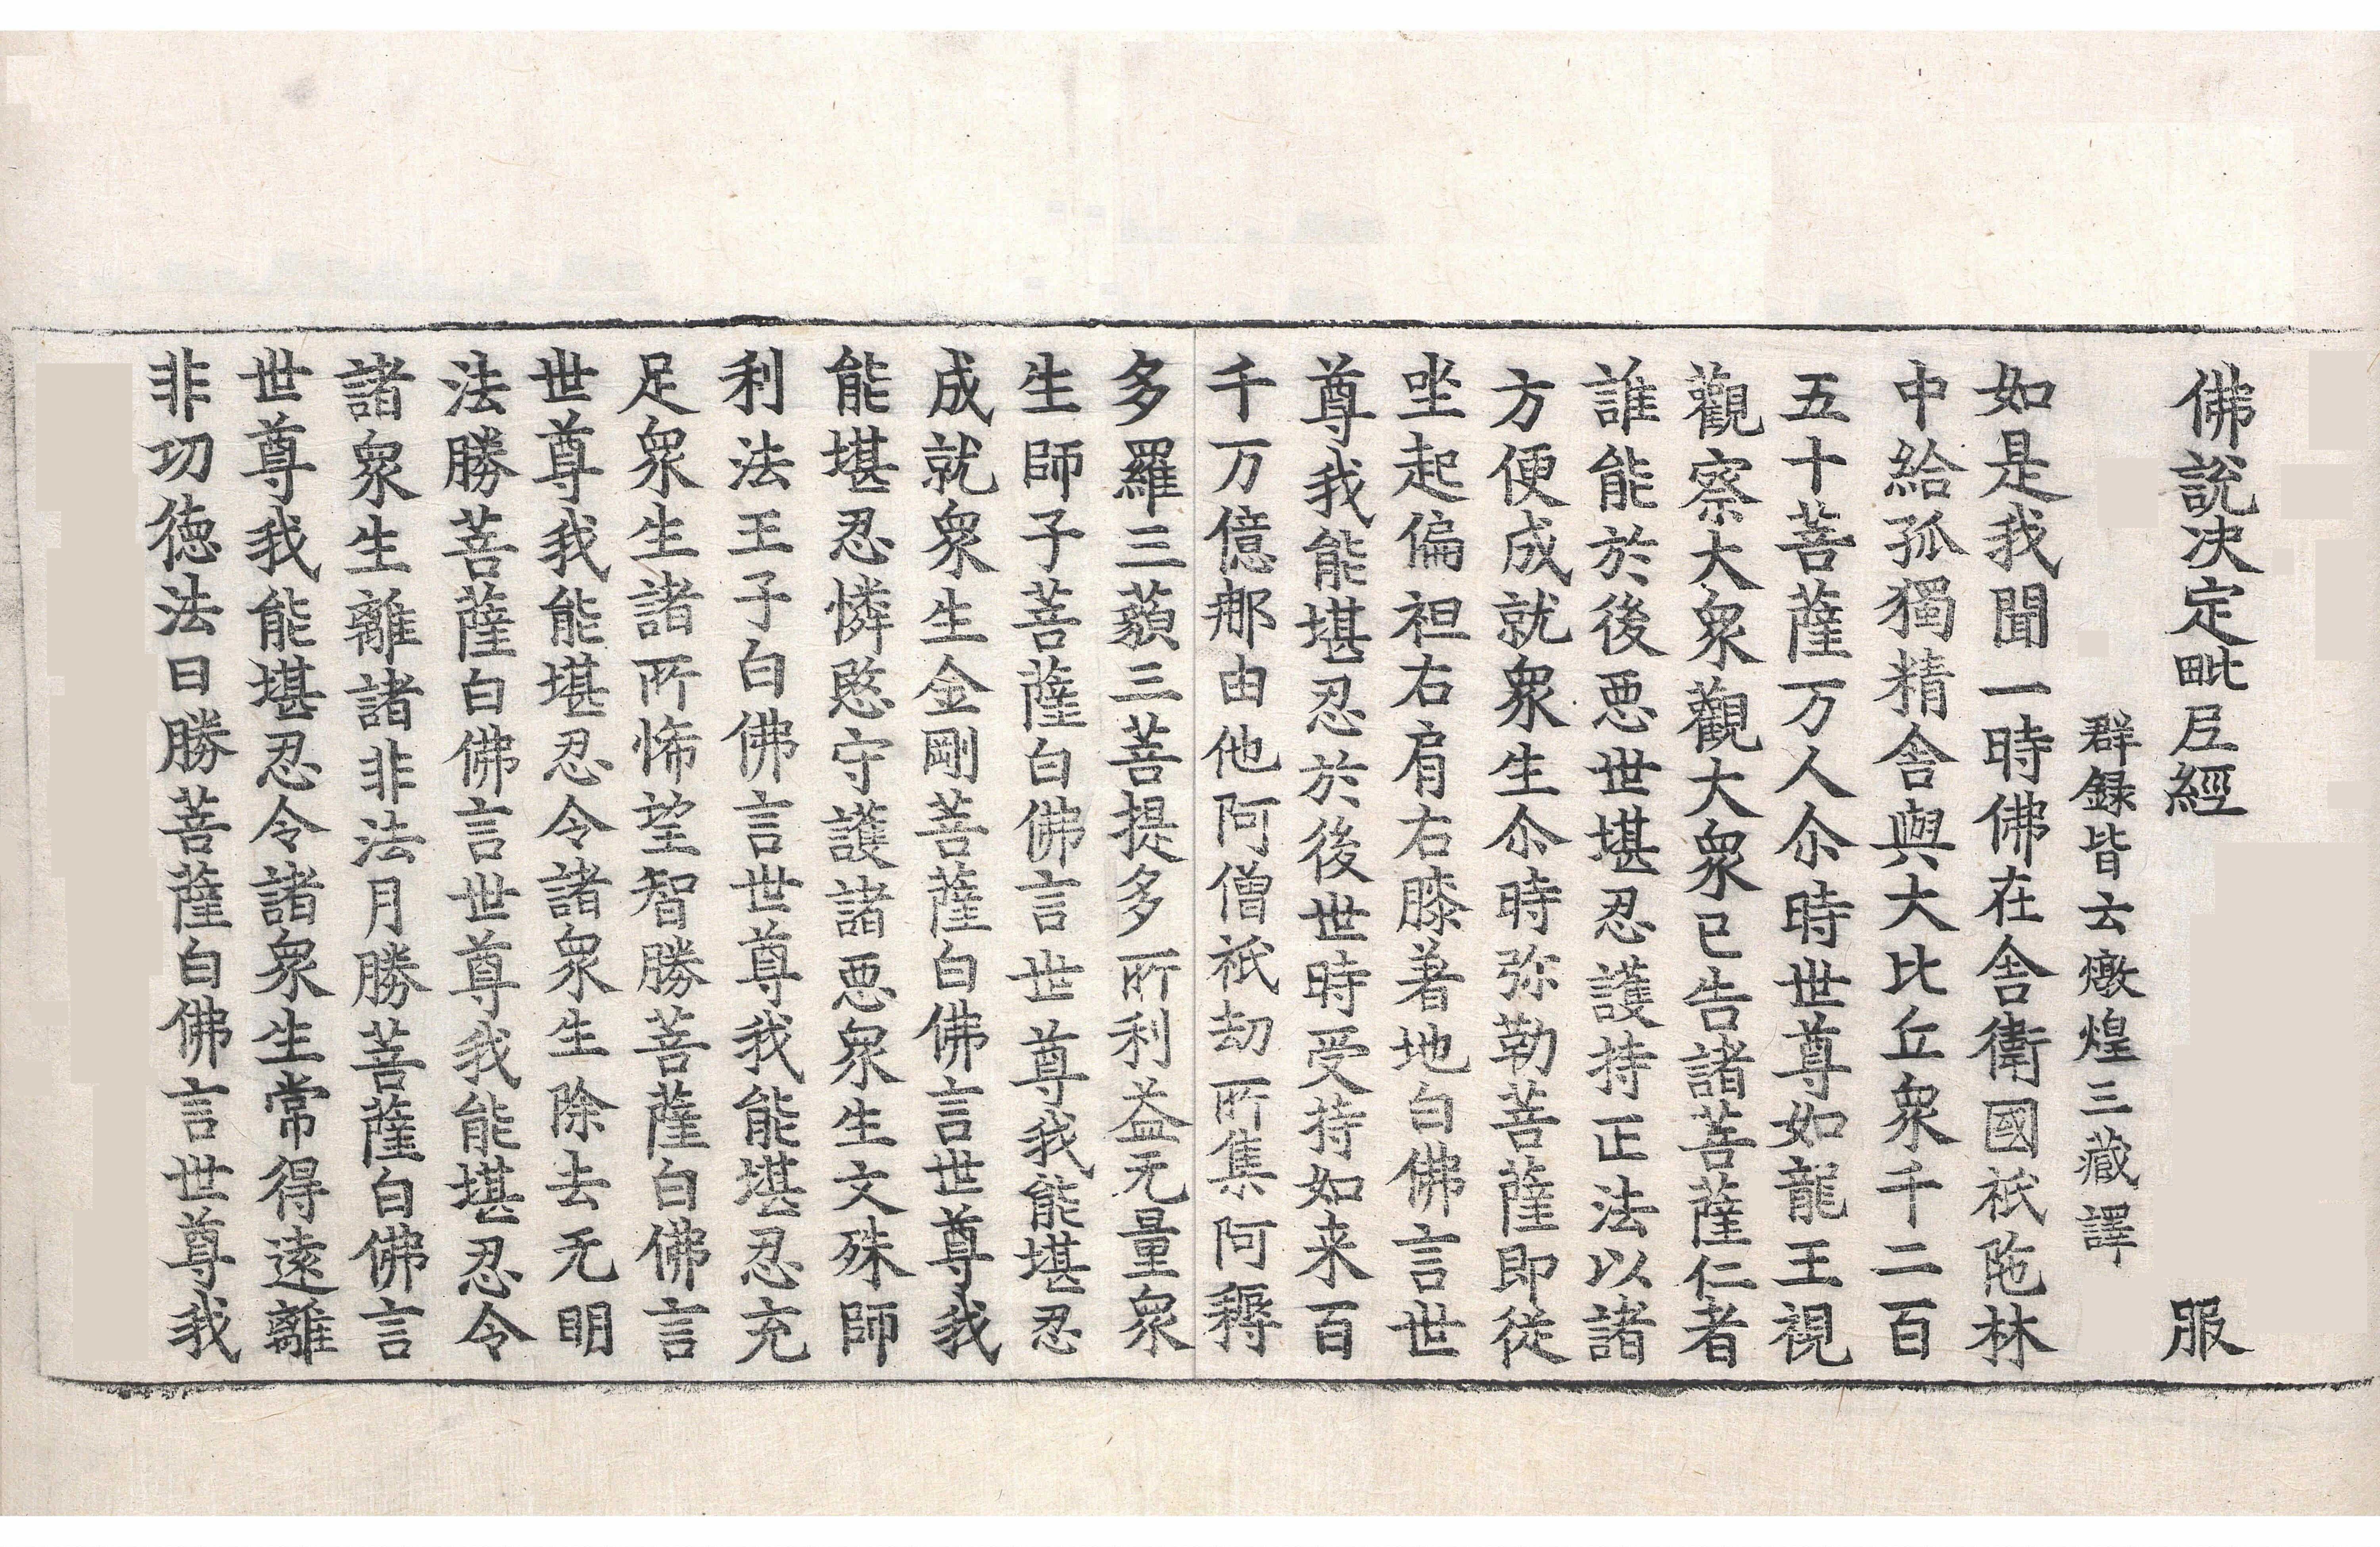 佛說決定毗尼經 服
群録皆云燉煌三藏譯
如是我聞一時佛在舍衛國祇陁林
中給孤獨精舍與大比丘衆千二百
五十菩薩万人尒時世尊如龍王視
觀察大衆觀大衆已告諸菩薩仁者
誰能於後惡世堪忍護持正法以諸
方便成就衆生尒時弥勒菩薩即從
坐起偏袒右肩右膝著地白佛言世
尊我能堪忍於後世時受持如来百
千万億那由他阿僧祇劫所集阿耨
多羅三藐三菩提多所利益无量衆
生師子菩薩白佛言世尊我能堪忍
成就衆生金剛菩薩白佛言世尊我
能堪忍憐愍守護諸惡衆生文殊師
利法王子白佛言世尊我能堪忍充
足衆生諸所悕望智勝菩薩白佛言
世尊我能堪忍令諸衆生除去无明
法勝菩薩白佛言世尊我能堪忍令
諸衆生離諸非法月勝菩薩白佛言
世尊我能堪忍令諸衆生常得遠離
非功徳法日勝菩薩白佛言世尊我